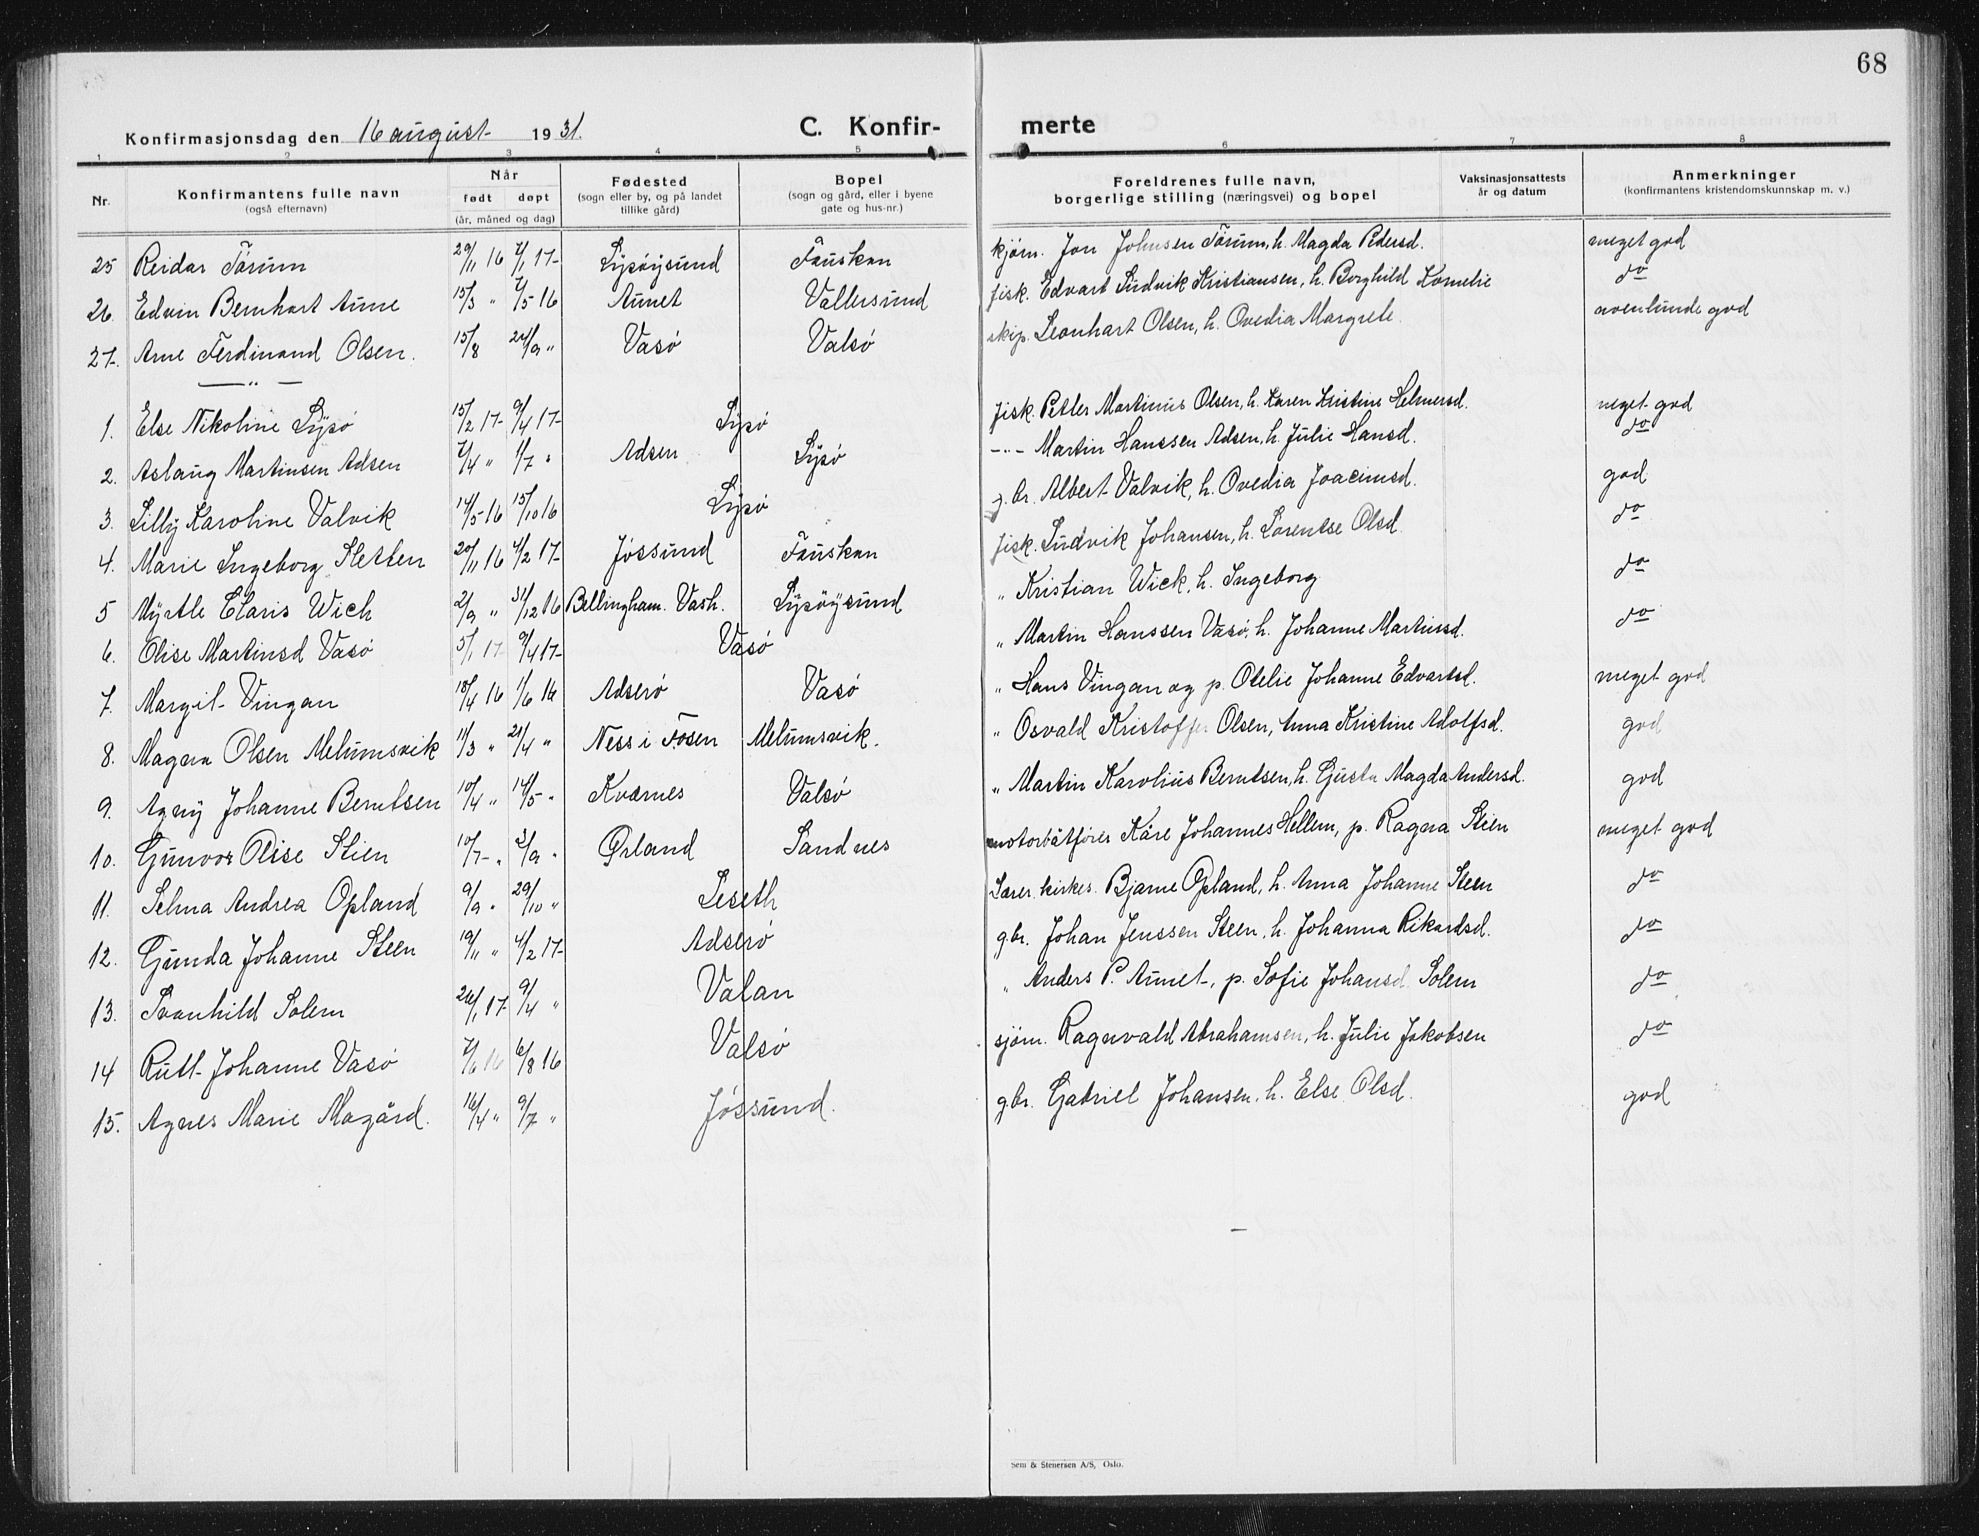 68
Konfirmasjonsdag den 16 august 1931. C. Konfir- merte
1 2 3 4 5 6 7 8
Nr. Konfirmantens fulle navn (også efternavn) Når født døpt (år, måned og dag) Fødested (sogn eller by, og på landet tillike gård) Bopel (sogn og gård, eller i byene gate og hus-nr.) Foreldrenes fulle navn, borgerlige stilling (næringsvei) og bopel Vaksinasjonsattests år og datum Anmerkninger (konfirmantens kristendomskunnskap m. v.)
25 Reidar Tørum 29/11 16 7/1 17- Lysøysund Fauskan kjøm. Jon Johnsen Tørum, h. Magda Pedersd. meget god
26. Edvin Bernhart Aune 15/3 " 7/5 16 Aunet Vallersund fisk. Edvart Ludvik Kristiansen, h. Borghild Kornelie do
27. Arne Ferdinand Olsen. 15/8 24/9 " Vasø Valsø skip. Leonhart Olsen, h. Ovedia Margrete. noenlunde god
— " —
1. Else Nikoline Lysø 15/2 17- 9/4 17- Lysø fisk. Petter Martinus Olsen, h. Karen Kristine Helmersd. meget god
2. Aslaug Martinsen Adsen 7/4 " 1/7 " Adsen Lysø -"- Martin Hanssen Adsen, h. Julie Hansd. do
3. Lilly Karoline Valvik 14/5 16 15/10 16 Lysø g.br. Albert Valvik, h. Ovedia Joacimsd. god
4. Marie Ingeborg Sletten 20/11 16 4/2 17- Jøssund Fauskan fisk. Ludvik Johansen, h. Lorentse Olsd. do
5 Myrtle Claris Wich 2/9 " 31/12 16 Bellingham. Vash. Lysøysund " Kristian Wick, h. Ingeborg do
6. Olise Martinsd Vasø 5/1 17 9/4 17- Vasø " Martin Hanssen Vasø, h. Johanne Martinsd. do
7. Margit Vingan 18/4 16 1/6 16 Adserø Vasø " Hans Vingan og p. Otelie Johanne Edvartsd. meget god
8. Magna Olsen Melumsvik 11/3 " 24/4 " Ness i Fosen Melumsvik. " Osvald Kristoffer Olsen, Anna Kristine Adolfsd. god
9. Agny Johanne Berntsen 10/4 " 14/5 " Kvernes Valsø " Martin Karolius Berntsen, h. Gusta Magda Andersd. god
10. Gunvor Olise Stien 10/7- " 3/9 " Ørland Sandnes motorbåtfører Kåre Johannes Hellem, p. Ragna Stien meget god
11. Selma Andrea Opland 9/9 " 29/10 " Leseth Lærer. kirkes. Bjarne Opland, h. Anna Johanne Steen do
12. Gunda Johanne Steen 19/11 " 4/2 17- Adserø g.br. Johan Jenssen Steen, h. Johanna Rikardsd. do
13. Svanhild Solem 26/1 17- 9/4 " Valan " Anders P. Aunet, p. Sofie Johansd. Solem do
14 Rutt Johanne Vasø 7/6 16 6/8 16 Valsø sjøm. Ragnvald Abrahamsen, h. Julie Jakobsen do
15. Agnes Marie Magård. 16/4 " 9/7 " Jøssund. g.br. Gabriel Johansen, h. Else Olsd. god
Sem & Stenersen A/S, Oslo.